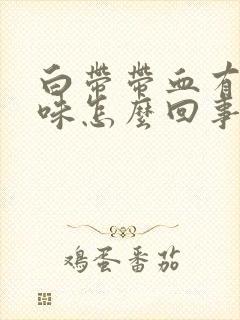 白带带血有
味怎麼回事
鸡蛋番茄